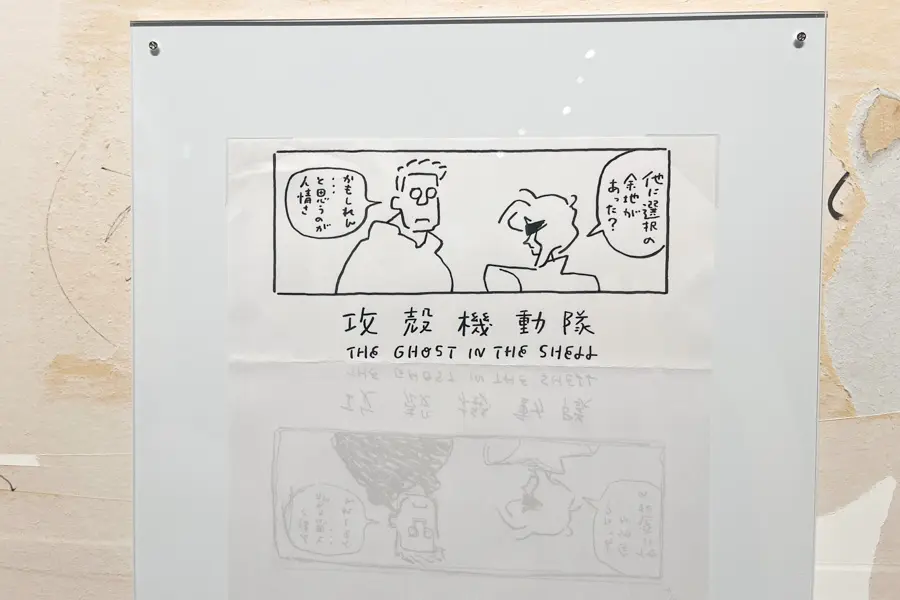 他に選択の
余地が
あった？
かもしれん
…
と思うのが
人情さ
攻殻機動隊
THE GHOST IN THE SHELL